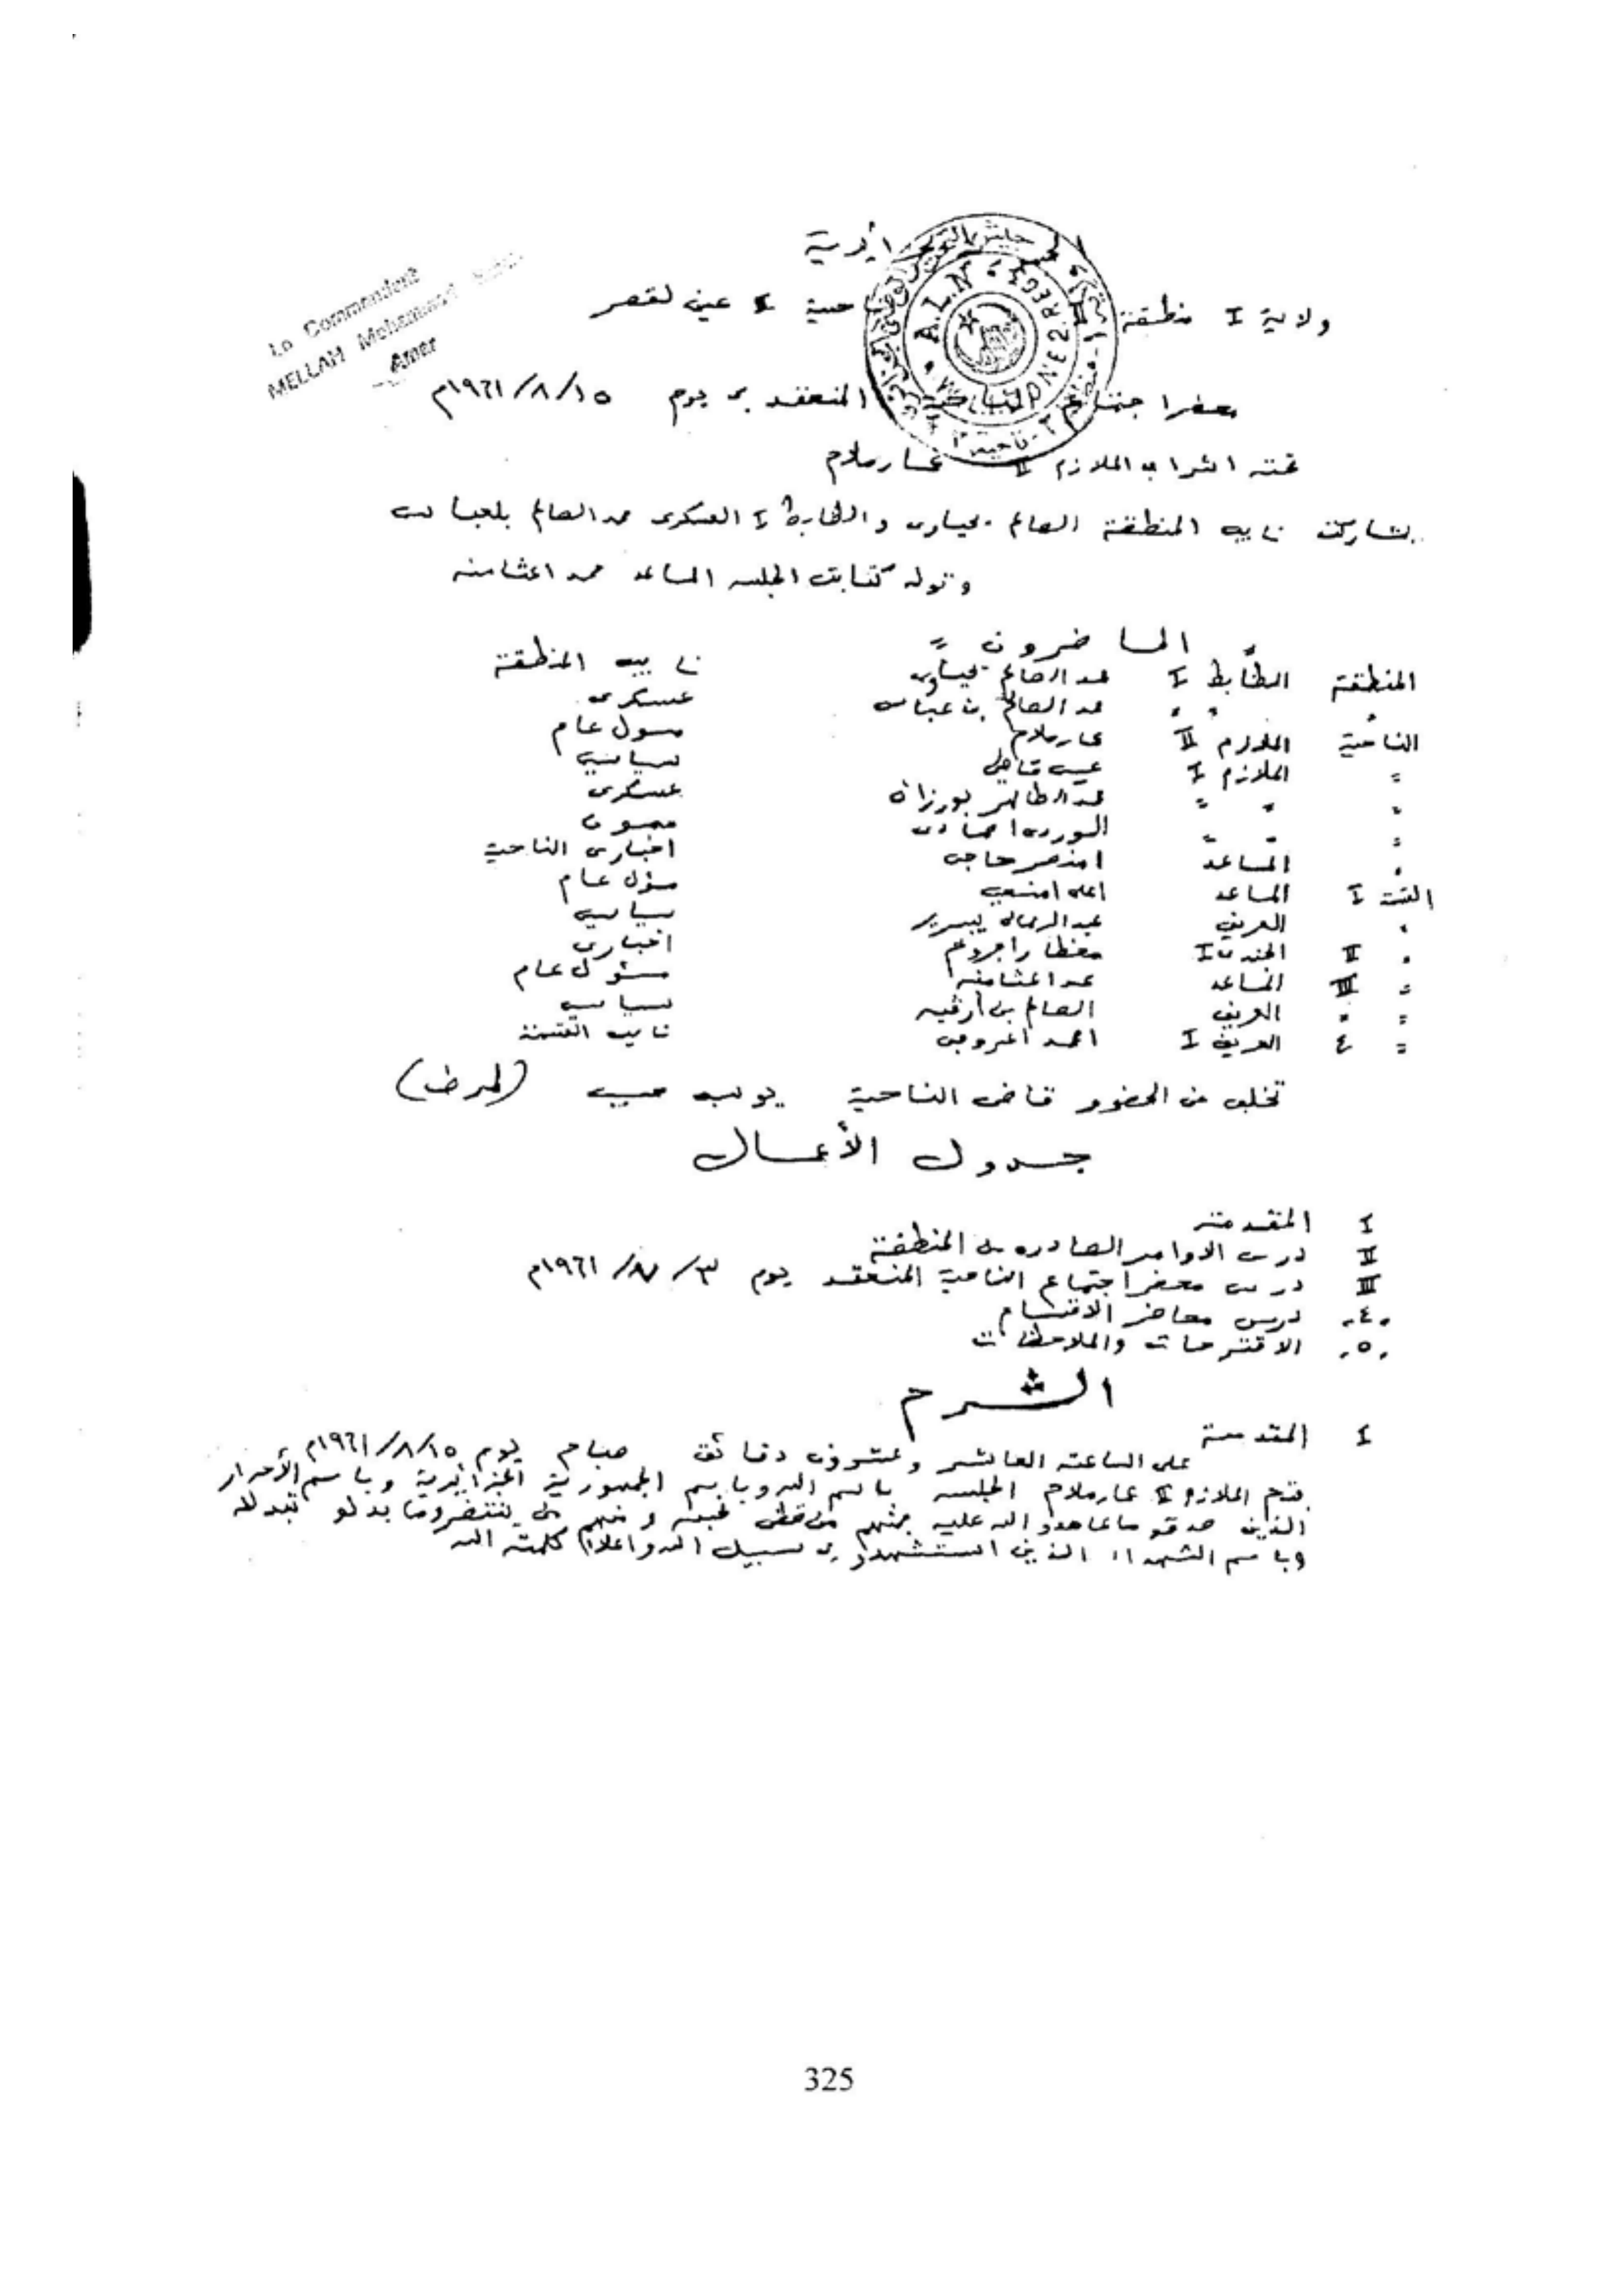 Le Commandant
MELLAH Mohammed
Amar
A.L.N
ولاية I منطقة II ناحية I عين لقصر
محضر اجتماع الناحية المنعقد في يوم ١٩٦١/٨/١٥م
تحت اشراف الملازم II عمار ملاح
بمشاركت نايب المنطقة الصالح يحياوى والظابط I العسكرى محمد الصالح بلعباس
وتوله كتابت الجلسه المساعد محمد اعثامنه
الحاضرون =
المنطقة الظابط I محمد الصالح يحياوى نايب المنطقة
" " " محمد الصالح بن عباس عسكرى
الناحية الملازم II عمار ملاح مسول عام
= الملازم I عيسى قاضى سياسي
" " = محمد الطاهر بورزان عسكرى
= " = الوردى
" المساعد حاجى اخبارى الناحية
القسمة I المساعد اعلى مسؤل عام
" العريف عبد الرحمان سياسي
" II الجندى I اخبارى
= III المساعد محمد اعثامنه مسئول عام
= " العريف الصالح بن أرقيه سياسي
= ٤ العريف I احمد نايب القسمة
تخلف عن الحضور قاضى الناحية (لمرض)
جدول الأعمال
I المقدمة
II درس الاوامر الصادره من المنطقة
III درس محضر اجتماع الناحية المنعقد يوم ٣/ ١٩٦١م
٤. درس محاضر الاقسام
٥. الاقترحات والملاحظات
الشرح
I المقدمة
على الساعة العاشر وعشرون دقائق صباح يوم ١٩٦١/٨/١٥م
فتح الملازم II عمار ملاح الجلسه باسم الله وباسم الجمهورية الجزايرية وباسم الأحرار
الذين صدقو ماعاهدو الله عليه فمنهم من قضى نحبه ومنهم من ينتضر وما بدلو تبديلا
وباسم الشهداء الذين استشهدو في سبيل الله واعلاء كلمة الله
325